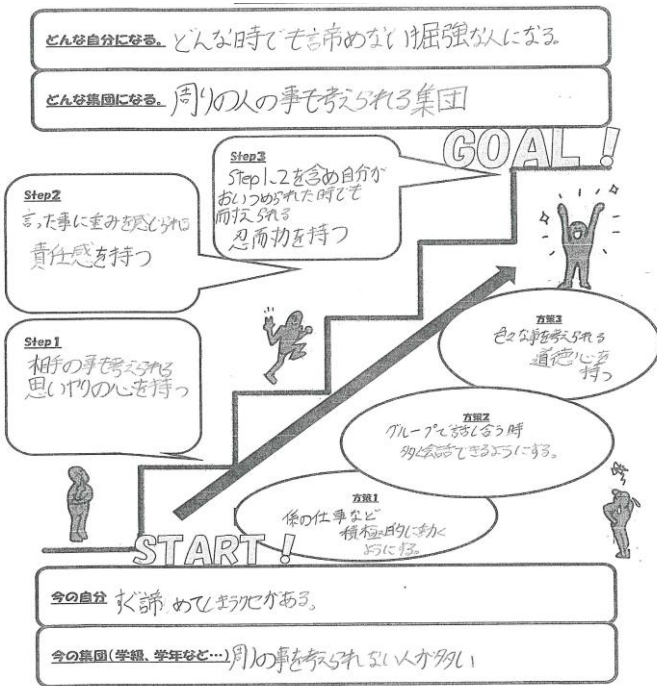 どんな自分になる。どんな時でも諦めない屈強な人になる。
どんな集団になる。周りの人の事も考えられる集団
GOAL!
Step3
Step1、2を含め自分が
おいつめられた時でも
耐えられる
忍耐力を持つ
Step2
言った事に重みを感じられる
責任感を持つ
Step1
相手の事も考えられる
思いやりの心を持つ
方策3
色々な事を考えられる
道徳心を
持つ
方策2
グループで話し合う時
多く会話できるようにする。
方策1
係の仕事など
積極的に動く
ようにする。
START!
今の自分 すぐ諦めてしまうクセがある。
今の集団(学級、学年など…)周りの事を考えられない人が多い